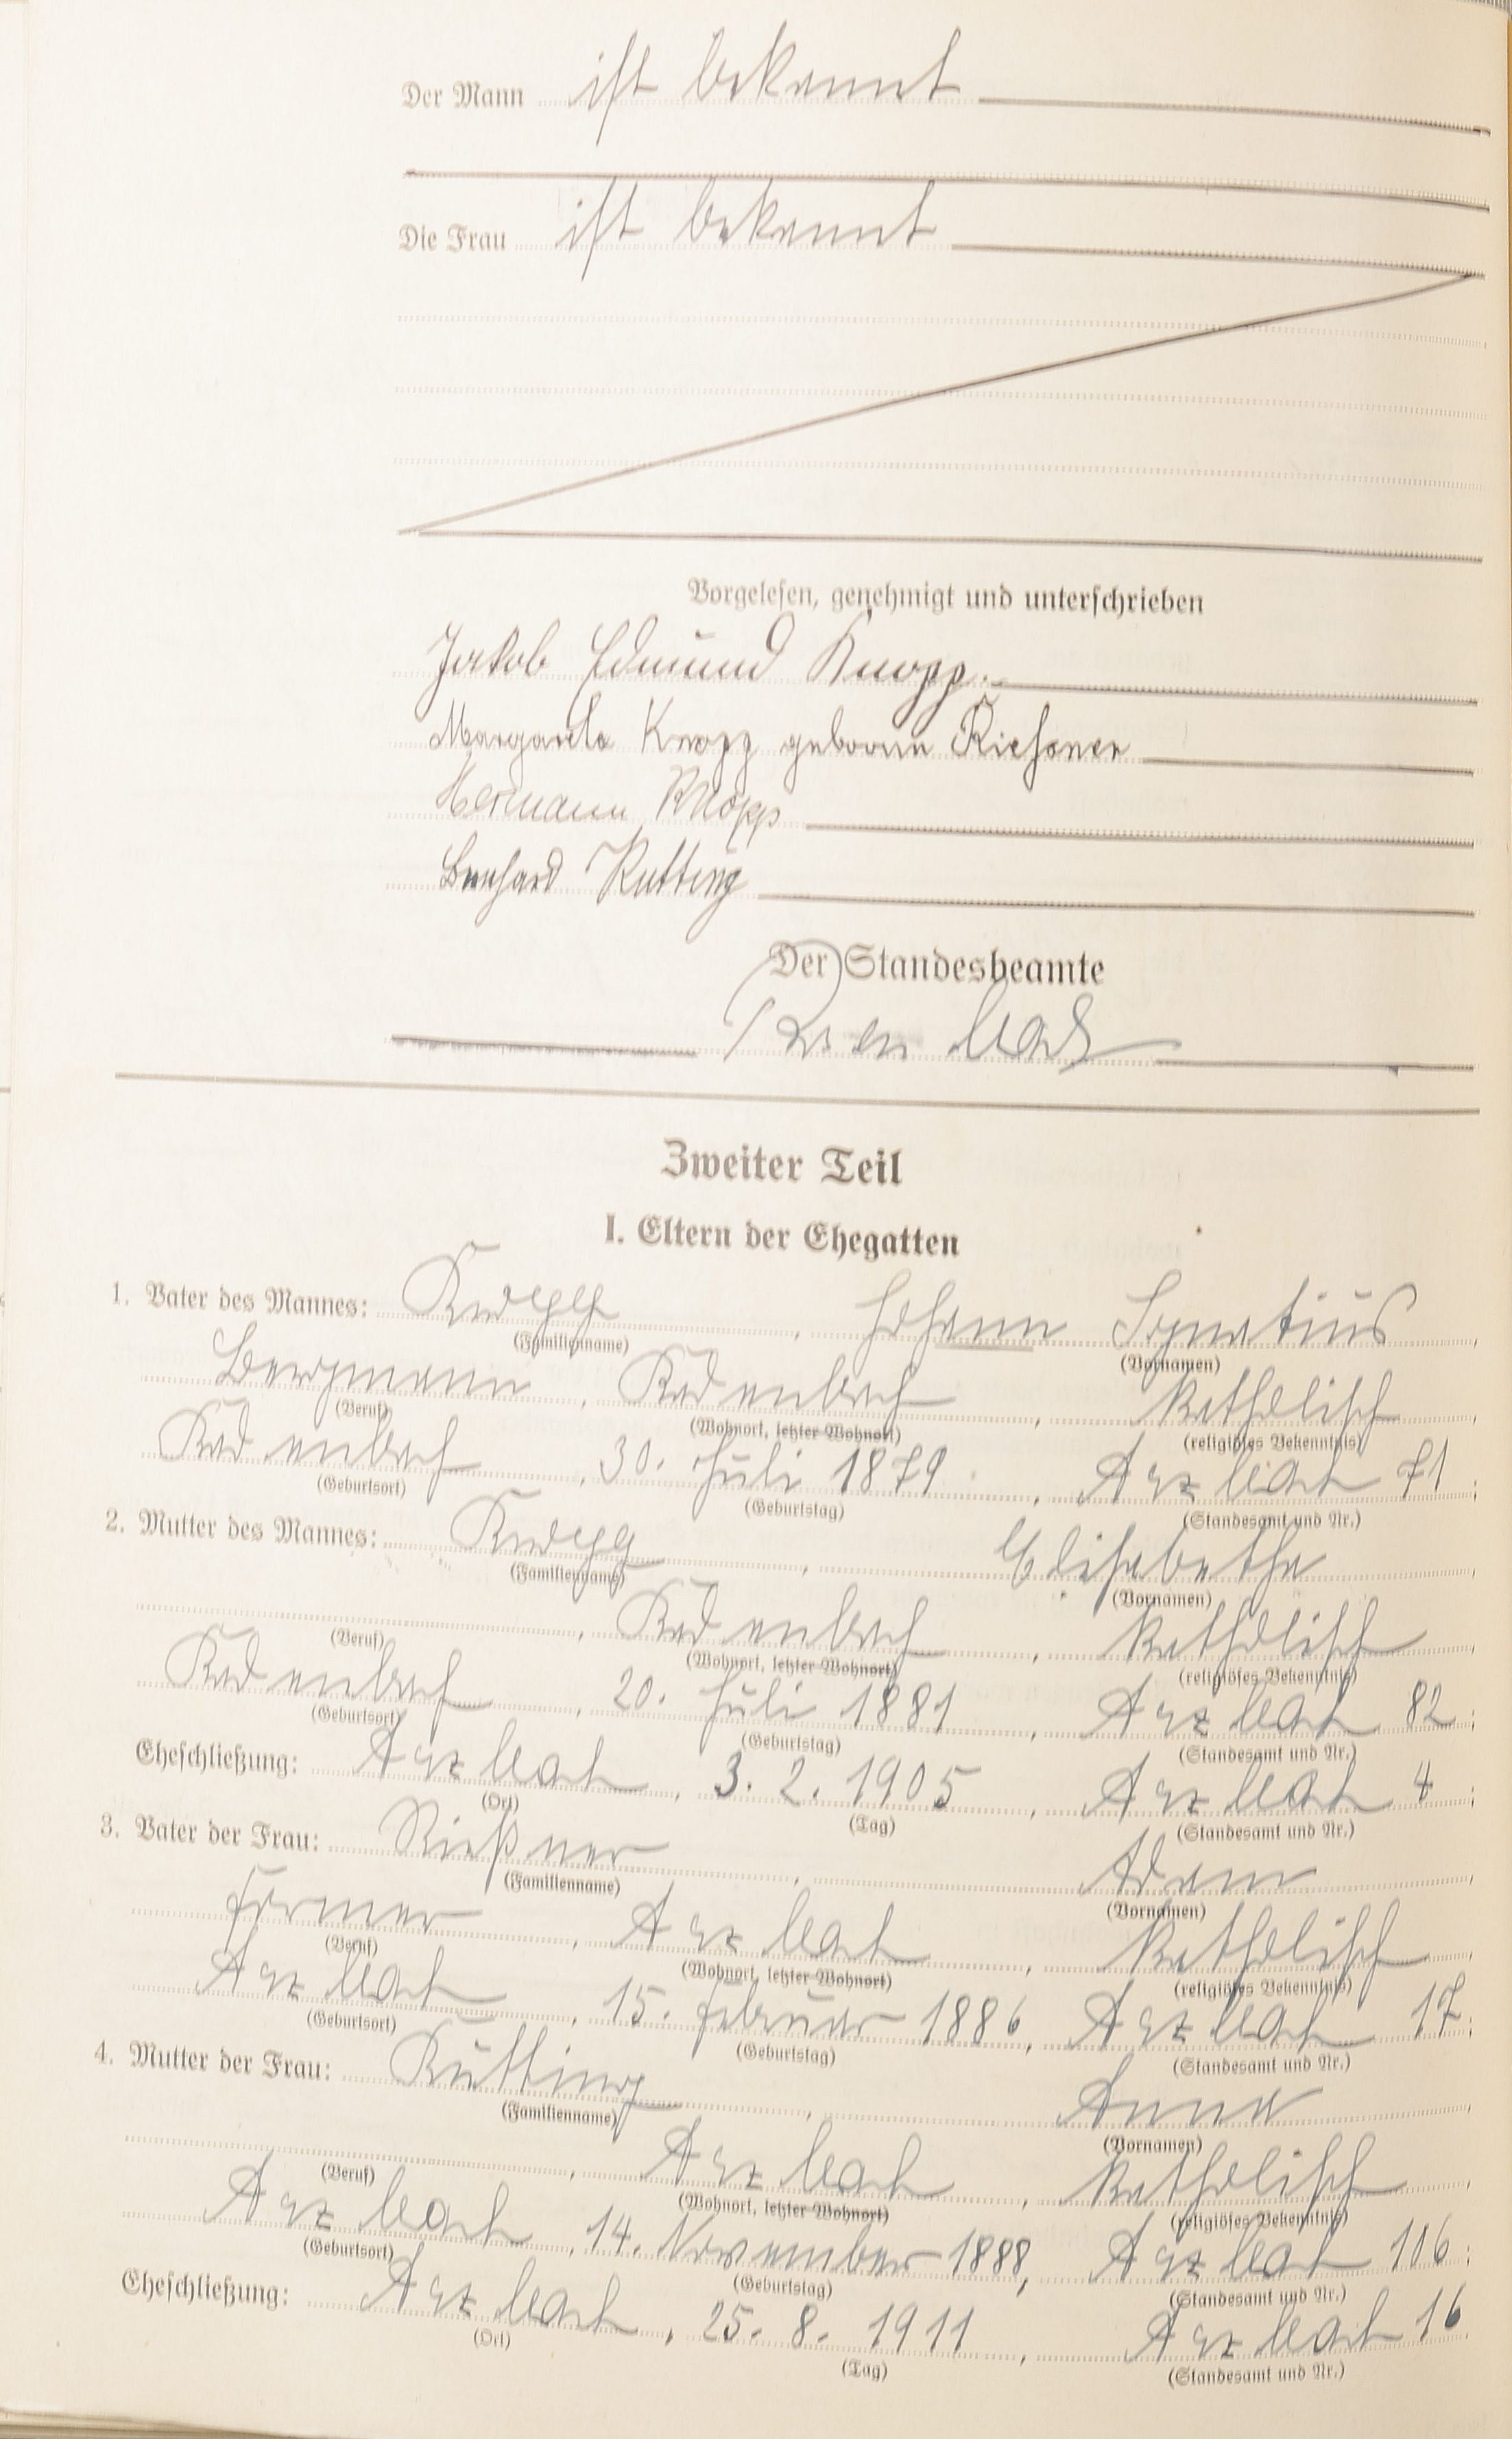 Der Mann ist bekannt
Die Frau ist bekannt
Vorgelesen, genehmigt und unterschrieben
Jakob Edmund Knopp.
Margareta Knopp geborene Rießner
Hermann Knopp
Bernhard Kutting
Der Standesbeamte
Zweiter Teil
I. Eltern der Ehegatten
1. Vater des Mannes: Knopp, Johann Ignatius,
(Familienname) (Vornamen)
Bergmann, Kadenbach, katholisch,
(Beruf) (Wohnort, letzter Wohnort) (religiöses Bekenntnis)
Kadenbach, 30. Juli 1879, Arzbach 71;
(Geburtsort) (Geburtstag) (Standesamt und Nr.)
2. Mutter des Mannes: Knopp, Elisabetha,
(Familienname) (Vornamen)
, Kadenbach, katholisch,
(Beruf) (Wohnort, letzter Wohnort) (religiöses Bekenntnis)
Kadenbach, 20. Juli 1881, Arzbach 82;
(Geburtsort) (Geburtstag) (Standesamt und Nr.)
Eheschließung: Arzbach, 3. 2. 1905, Arzbach 4;
(Ort) (Tag) (Standesamt und Nr.)
3. Vater der Frau: Rießner, Adam,
(Familienname) (Vornamen)
Former, Arzbach, katholisch,
(Beruf) (Wohnort, letzter Wohnort) (religiöses Bekenntnis)
Arzbach, 15. Februar 1886, Arzbach 17;
(Geburtsort) (Geburtstag) (Standesamt und Nr.)
4. Mutter der Frau: Kutting, Anna,
(Familienname) (Vornamen)
, Arzbach, katholisch,
(Beruf) (Wohnort, letzter Wohnort) (religiöses Bekenntnis)
Arzbach, 14. November 1888, Arzbach 106;
(Geburtsort) (Geburtstag) (Standesamt und Nr.)
Eheschließung: Arzbach, 25. 8. 1911, Arzbach 16
(Ort) (Tag) (Standesamt und Nr.)